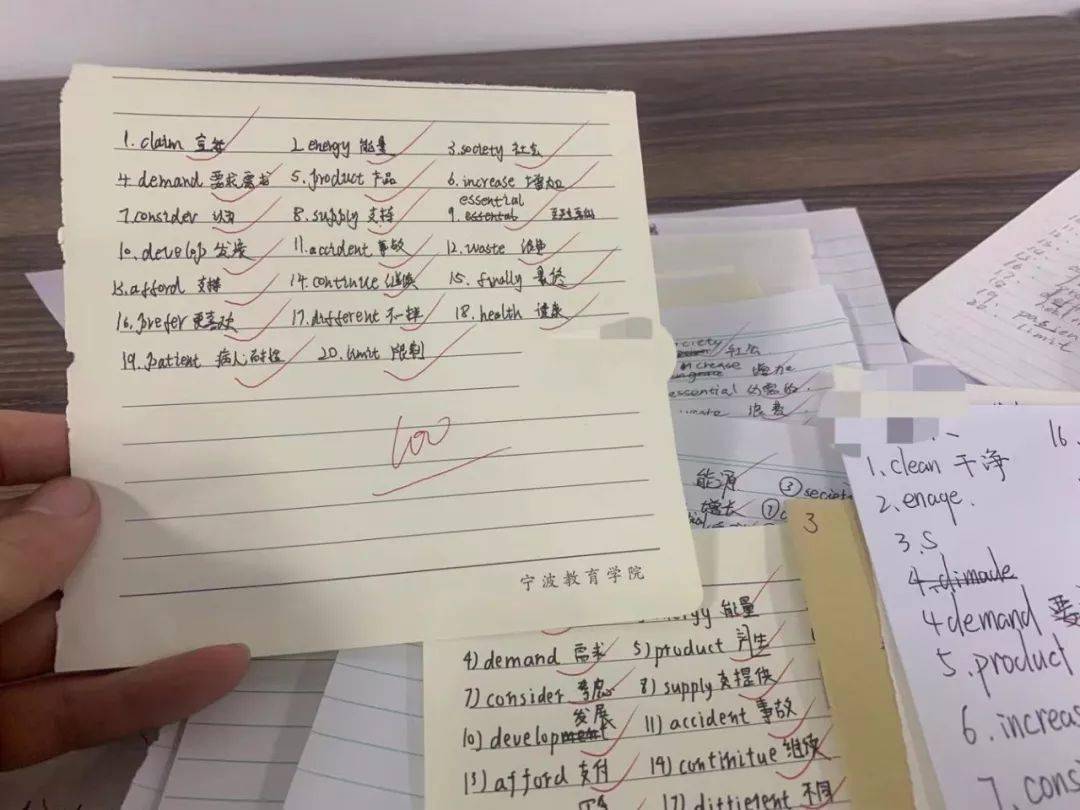 1. claim 宣称 2. energy 能量 3. society 社会
4. demand 需求需求 5. product 产品 6. increase 增加
essential
7. consider 认为 8. supply 支持 9. essental
10. develop 发展 11. accident 事故 12. waste 浪费
13. afford 支持 14. continue 继续 15. finally 最终
16. prefer 更喜欢 17. different 不一样 18. health 健康
19. patient 病人,耐心 20. limit 限制
100
宁波教育学院
society 社会
increase 增加
essential 必需的
浪费
能源 ③ societ
增长
3
energy 能量
4) demand 需求 5) product 产生
7) consider 考虑 8) supply 支提供
发展
10) development 11) accident 事故
13) afford 支付 14) continitue 继续
17) dittierent 不同
16.
1. clean 干净
2. enage.
3. S
4. dimade
4 demand 要
5. product
6. increas
7. cons
limit